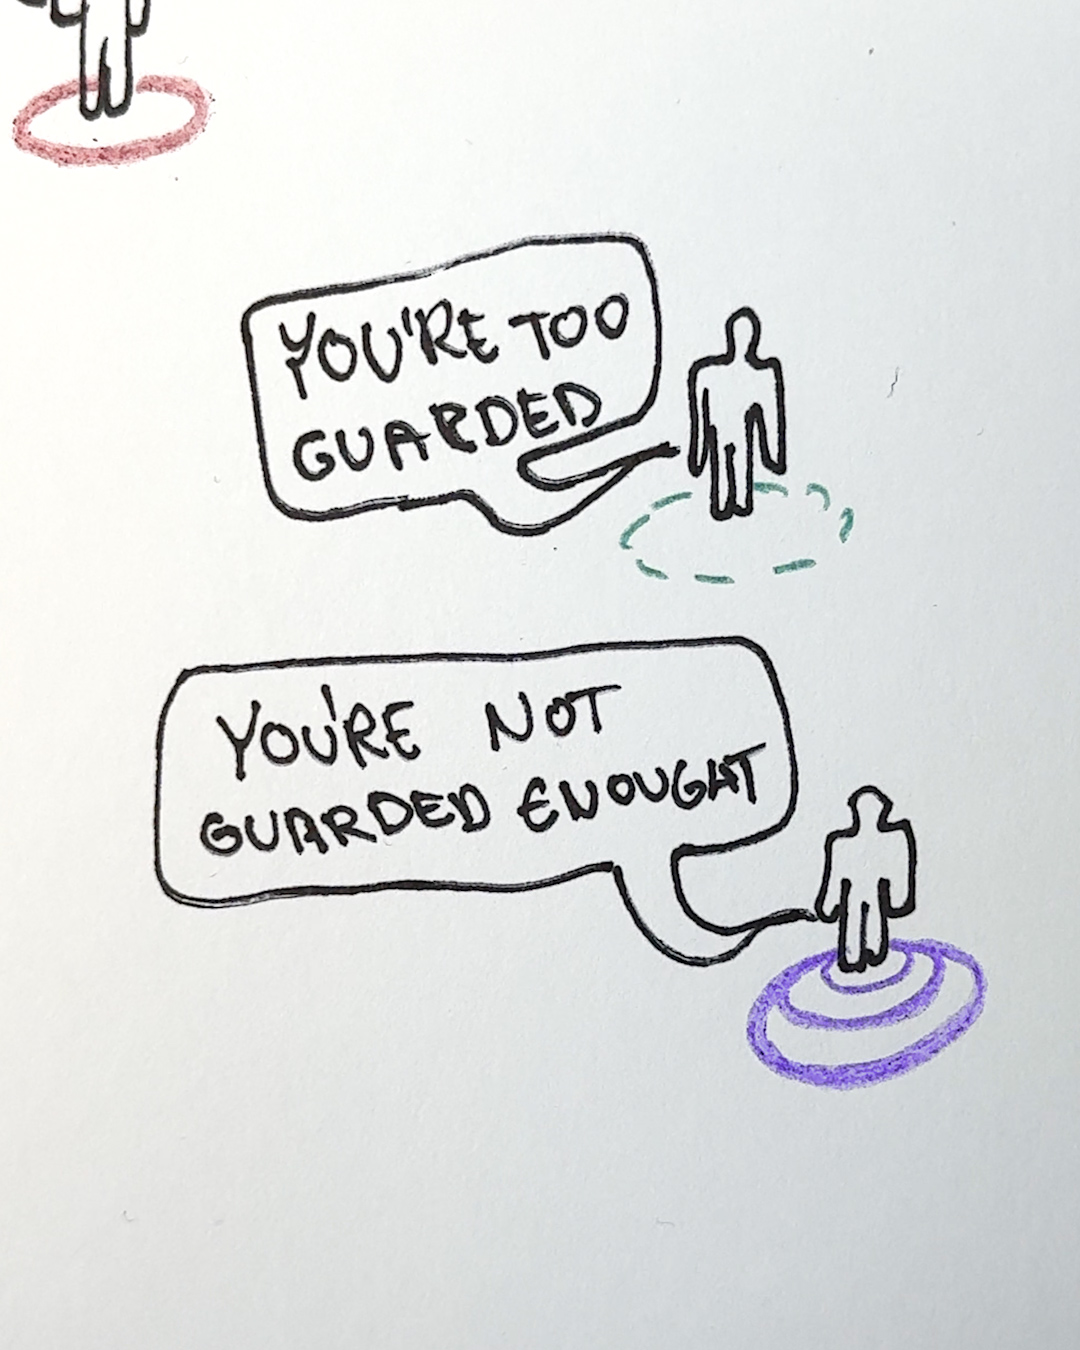 YOU'RE TOO
GUARDED
YOU'RE NOT
GUARDED ENOUGHT